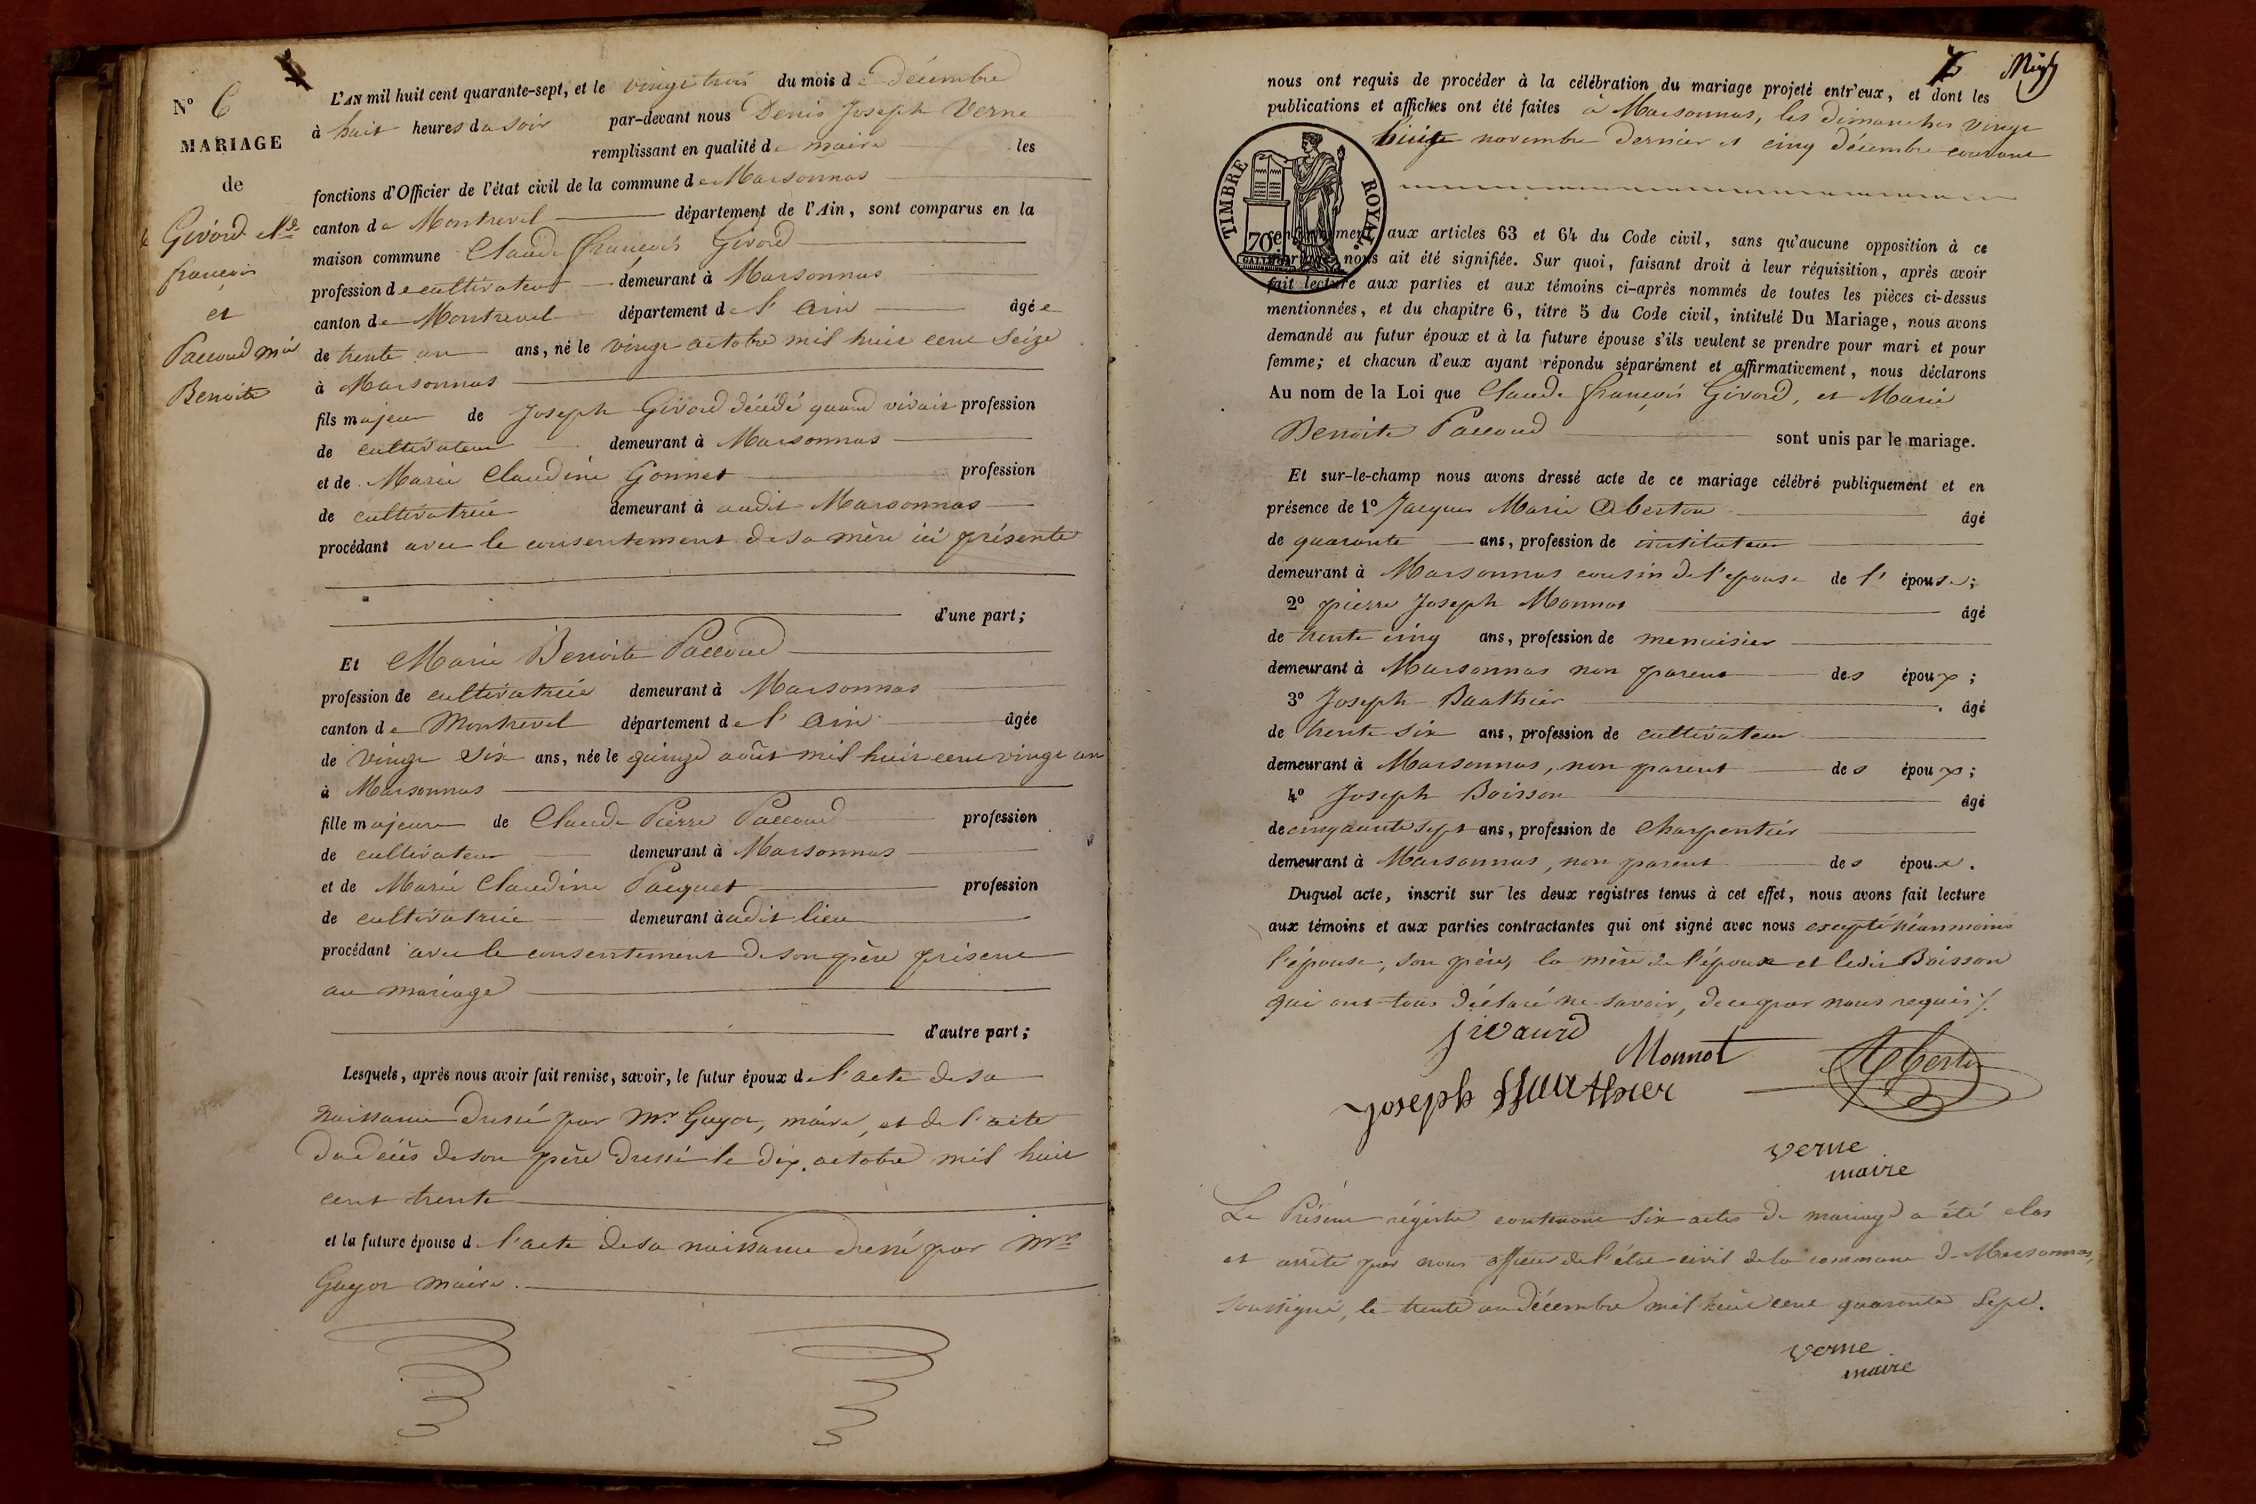 N° 6
MARIAGE
de
Givord Cde
françois
et
Paccoud Mie
Benoite
L'AN mil huit cent quarante-sept, et le vingt trois du mois de Décembre
à huit heures du soir par-devant nous Denis Joseph Verne
remplissant en qualité de maire les
fonctions d'Officier de l'état civil de la commune de Marsonnas
canton de Montrevel département de l'Ain, sont comparus en la
maison commune Claude françois Givord
profession de cultivateur demeurant à Marsonnas
canton de Montrevel département de l'Ain âgée
de trente un ans, né le vingt octobre mil huit cent seize
à Marsonnas
fils majeur de Joseph Givord décédé quand vivait profession
de cultivateur demeurant à Marsonnas
et de Marie Claudine Gonnet profession
de cultivatrice demeurant à audit Marsonnas
procédant avec le consentement de sa mère ici présente
d'une part;
Et Marie Benoite Paccoud
profession de cultivatrice demeurant à Marsonnas
canton de Montrevel département de l'Ain âgée
de vingt six ans, née le quinze août mil huit cent vingt un
à Marsonnas
fille majeure de Claude Pierre Paccoud profession
de cultivateur demeurant à Marsonnas
et de Marie Claudine Pacquet profession
de cultivatrice demeurant à audit lieu
procédant avec le consentement de son père présent
au mariage
d'autre part;
Lesquels, après nous avoir fait remise, savoir, le futur époux de l'acte de sa
naissance dressé par Mr Guyot, maire, et de l'acte
du décès de son père dressé le dix octobre mil huit
cent trente
et la future épouse d l'acte de sa naissance dressé par Mr
Guyot maire.
7
nous ont requis de procéder à la célébration du mariage projeté entr'eux, et dont les
publications et affiches ont été faites à Marsonnas, les dimanches vingt
huit novembre dernier et cinq décembre courant
TIMBRE ROYAL.
70 c
conformément aux articles 63 et 64 du Code civil, sans qu'aucune opposition à ce
mariage nous ait été signifiée. Sur quoi, faisant droit à leur réquisition, après avoir
fait lecture aux parties et aux témoins ci-après nommés de toutes les pièces ci-dessus
mentionnées, et du chapitre 6, titre 5 du Code civil, intitulé Du Mariage, nous avons
demandé au futur époux et à la future épouse s'ils veulent se prendre pour mari et pour
femme; et chacun d'eux ayant répondu séparément et affirmativement, nous déclarons
Au nom de la Loi que Claude françois Givord, et Marie
Benoite Paccoud sont unis par le mariage.
Et sur-le-champ nous avons dressé acte de ce mariage célébré publiquement et en
présence de 1° Jacques Marie Oberton âgé
de quarante ans, profession de instituteur
demeurant à Marsonnas cousin de l'epouse de l' épouse;
2° pierre Joseph Monnot âgé
de trente cinq ans, profession de menuisier
demeurant à Marsonnas non parent des époux;
3° Joseph Buathier âgé
de trente six ans, profession de cultivateur
demeurant à Marsonnas, non parent des époux;
4° Joseph Boisson âgé
de cinquante sept ans, profession de charpentier
demeurant à Marsonnas, non parent des époux.
Duquel acte, inscrit sur les deux registres tenus à cet effet, nous avons fait lecture
aux témoins et aux parties contractantes qui ont signé avec nous excepté néanmoins
l'épouse, son père, la mère de l'époux et ledit Boisson
qui ont tous déclaré ne savoir, de ce par nous requis
givaurd
Monnot
Joseph Buathier
verne
maire
Le Présent régistre contenant six actes de mariage a été clos
et arrêté par nous officier de l'état civil de la commune de Marsonnas,
soussigné, le trente un décembre mil huit cent quarante sept.
verne
maire